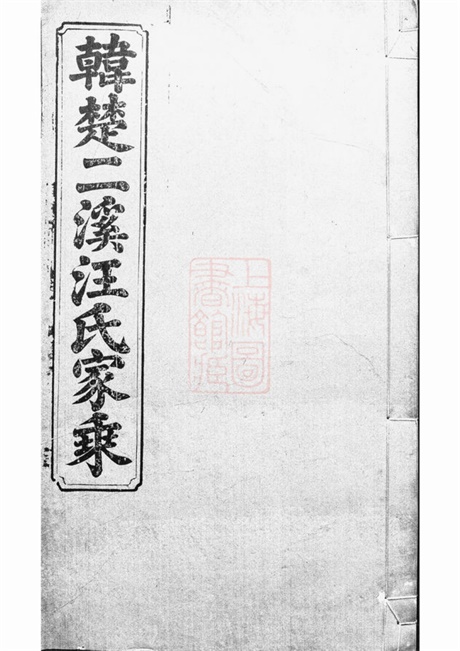 韓楚二溪汪氏家乘
上海圖
書館藏